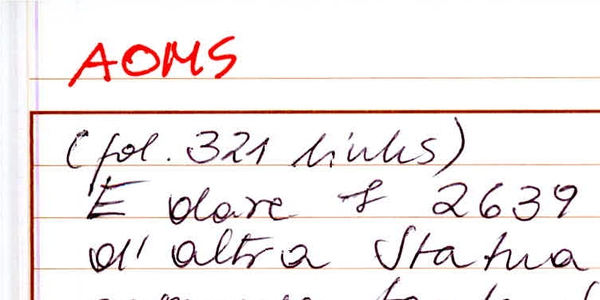 AOMS
(fol. 321 links)
E dare 2639
d'altra Statua